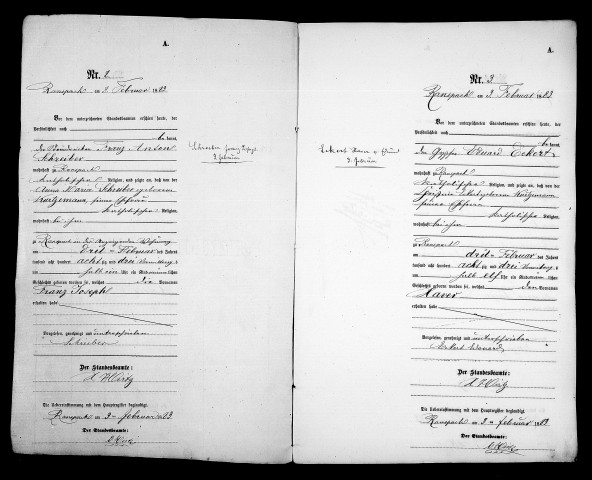 A.
Nr. 2
Ranspach am 3 Februar 1883
Vor dem unterzeichneten Standesbeamten erschien heute, der
Persönlichkeit nach
be kannt,
der Franz Anton
Schreiber
wohnhaft zu Ranspach
katholischer Religion, und zeigte an, daß von der
Anna Maria Schreiber geborenen
Kurtzemann, seiner Ehefrau
katholischer Religion,
wohnhaft bei ihm
zu Ranspach in der Wohnung
am drit ten Februar des Jahres
tausend acht hundert achtzig und drei Vormittags
um halb ein Uhr ein Kind männlichen
Geschlechts geboren worden sei, welches die Vornamen
Franz Joseph
erhalten habe
Vorgelesen, genehmigt und unterschrieben
Schreiber
Der Standesbeamte:
Die Uebereinstimmung mit dem Hauptregister beglaubigt.
Ranspach am 3ten Februar 1883
Der Standesbeamte:
Schreiber Franz Joseph
3. Februar
A.
Nr. 3
Ranspach am 3 Februar 1883
Vor dem unterzeichneten Standesbeamten erschien heute, der
Persönlichkeit nach
be kannt,
der Eduard Eckert
wohnhaft zu Ranspach
katholischer Religion, und zeigte an, daß von der
geborenen Kurtzemann
seiner Ehefrau
katholischer Religion,
wohnhaft bei ihm
zu Ranspach
am drit ten Februar des Jahres
tausend acht hundert achtzig und drei Vormittags
um halb elf Uhr ein Kind männlichen
Geschlechts geboren worden sei, welches den Vornamen
Xaver
erhalten habe
Vorgelesen, genehmigt und unterschrieben
Eckert Eduard
Der Standesbeamte:
Die Uebereinstimmung mit dem Hauptregister beglaubigt.
Ranspach am 3ten Februar 1883
Der Standesbeamte:
Eckert Xaver
3. Februar